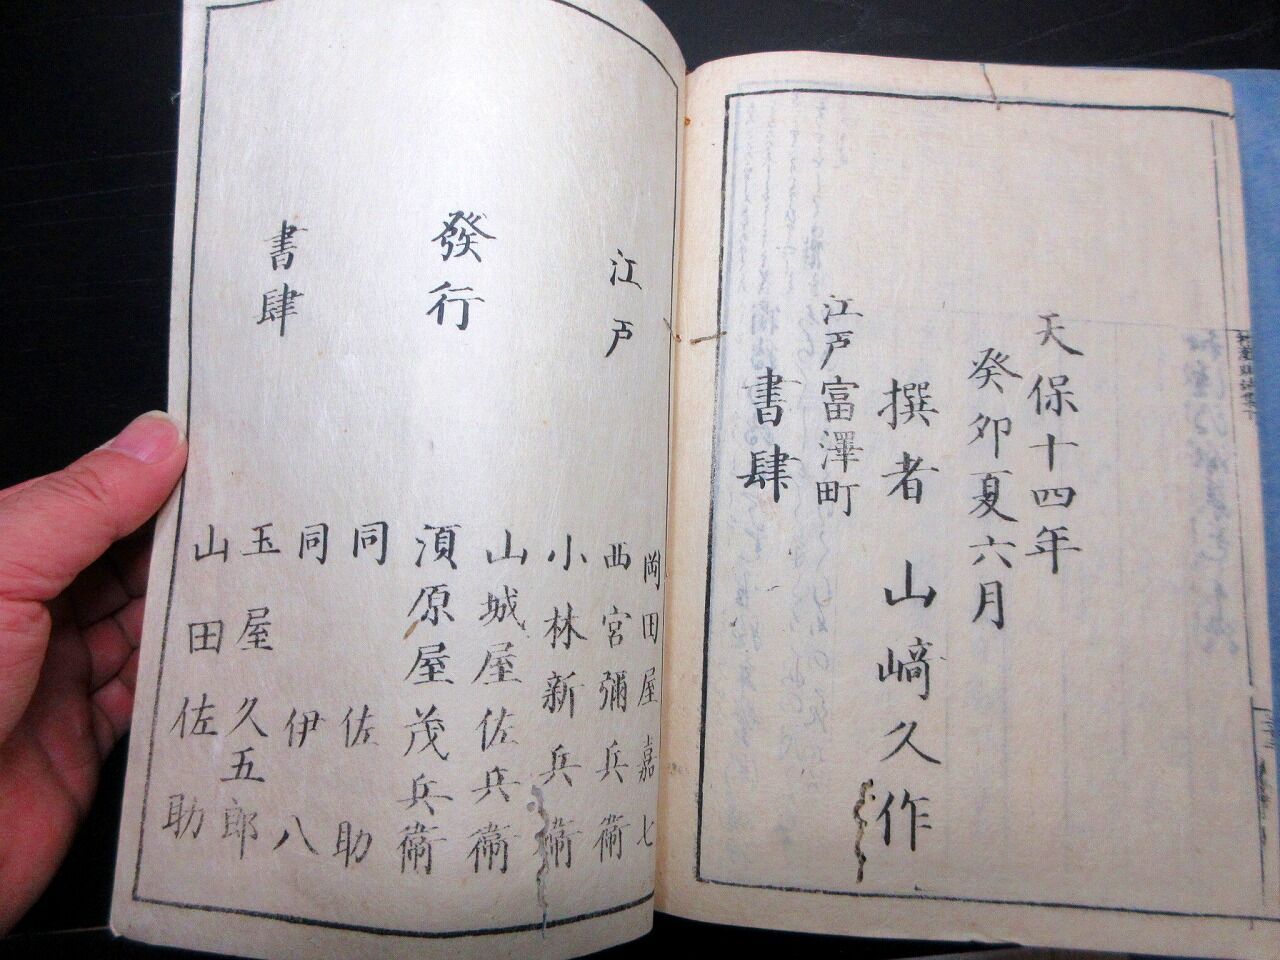 天保十四年
癸卯夏六月
撰者 山﨑久作
江戸富澤町
書肆
江戸
發行
書肆
岡田屋嘉七
西宮彌兵衞
小林新兵衞
山城屋佐兵衞
須原屋茂兵衞
同 佐助
同 伊八
玉屋久五郎
山田佐助